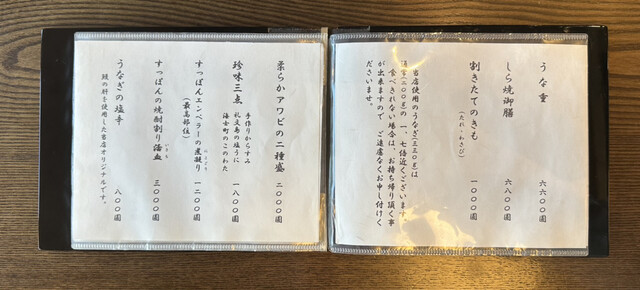 うな重 六六〇〇円
しら焼御膳 六八〇〇円
割きたてのきも 一〇〇〇円
(たれ・わさび)
当店使用のうなぎ(三三〇g)は
通常(二〇〇g)の一、七倍近くございます。
食べきれない場合は、お持ち帰り頂く事
が出来ますので、ご遠慮なくお申し付けく
ださいませ。
柔らかアワビの二種盛 二〇〇〇円
珍味三点 一八〇〇円
手作りからすみ
礼文島の塩うに
海女町のこのわた
すっぽんエンペラーの煮凝り 一二〇〇円
(最高部位)
すっぽんの焼酎割り活血 三〇〇〇円
うなぎの塩辛 八〇〇円
鰻の肝を使用した当店オリジナルです。